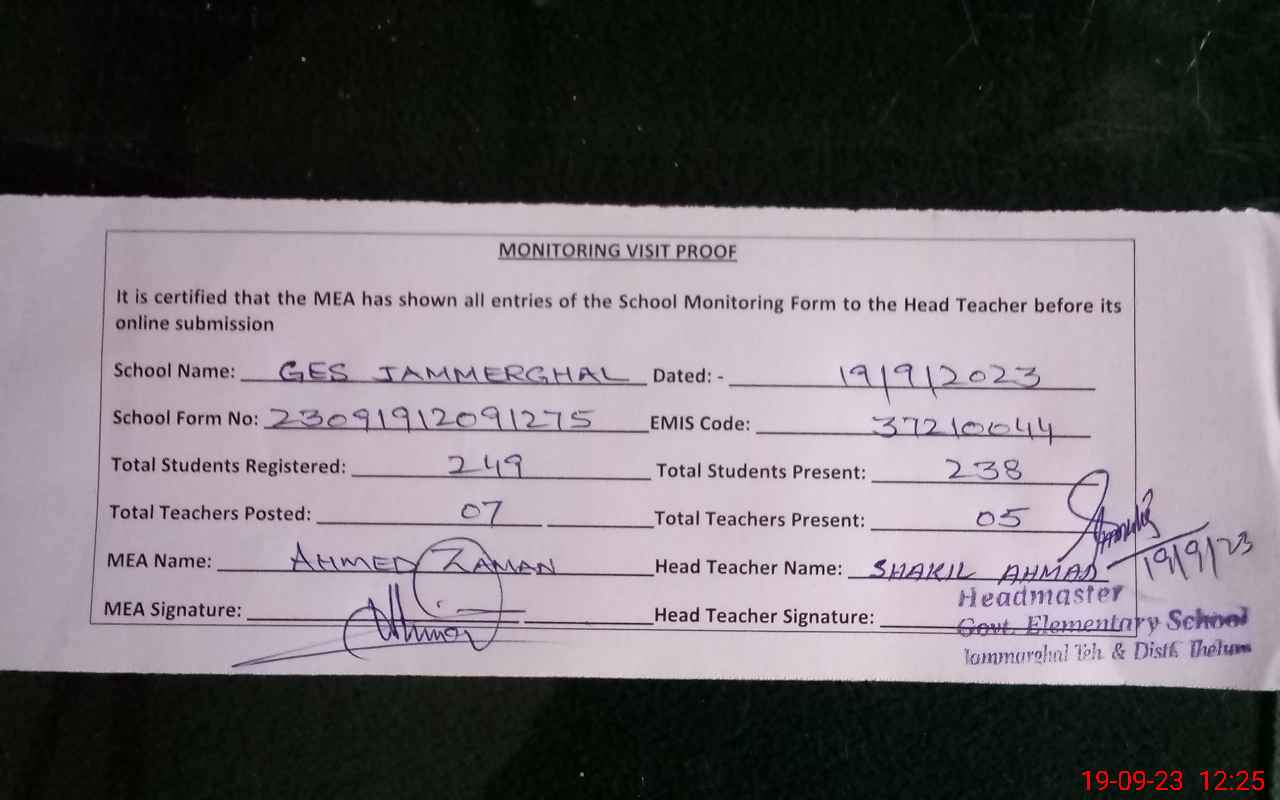 MONITORING VISIT PROOF
It is certified that the MEA has shown all entries of the School Monitoring Form to the Head Teacher before its
online submission
School Name: GES JAMMERGHAL Dated: - 19/9/2023
School Form No: 23091912091275 EMIS Code: 37210044
Total Students Registered: 249 Total Students Present: 238
Total Teachers Posted: 07 Total Teachers Present: 05
MEA Name: AHMED ZAMAN Head Teacher Name: SHAKIL AHMAD 19/9/23
MEA Signature: Head Teacher Signature:
Headmaster
Govt. Elementary School
Jammarghal Teh. & Distt. Jhelum
19-09-23 12:25